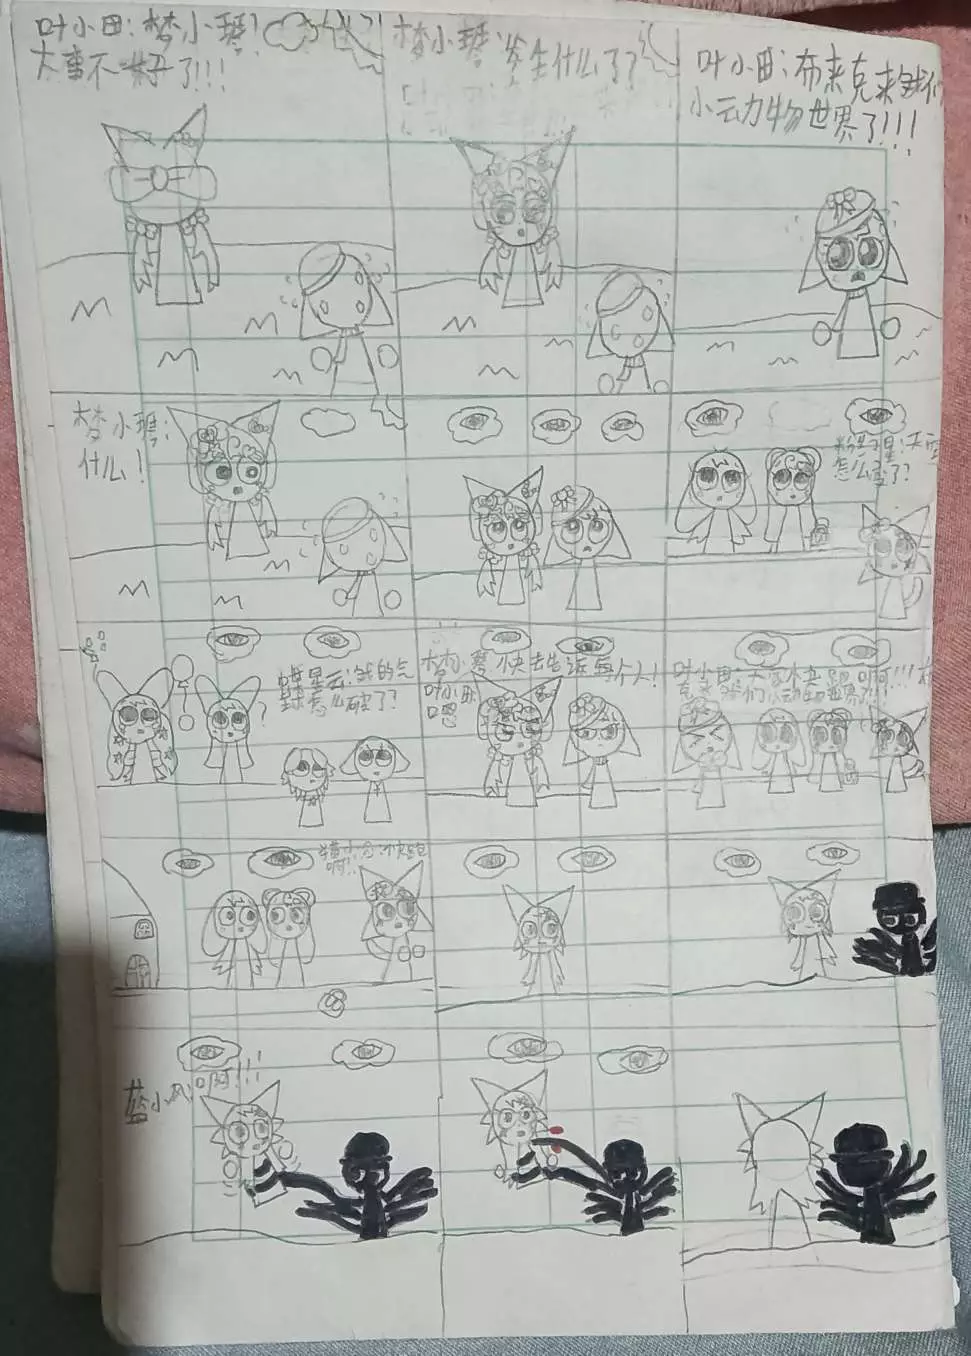 叶小田：梦小琴！
大事不好了!!!
梦小琴：发生什么了？
叶小田：布来克来我们
小云力物世界了!!!
梦小琴：
什么！
粉星星：天空
怎么变了？
星云：我的气
球怎么破了？
梦小琴：快去告诉每个人！
叶小田：
嗯
叶小田：大家快跑啊!!!布
克来我们小动物世界了!!
快跑
啊！
蓝小风：啊!!!